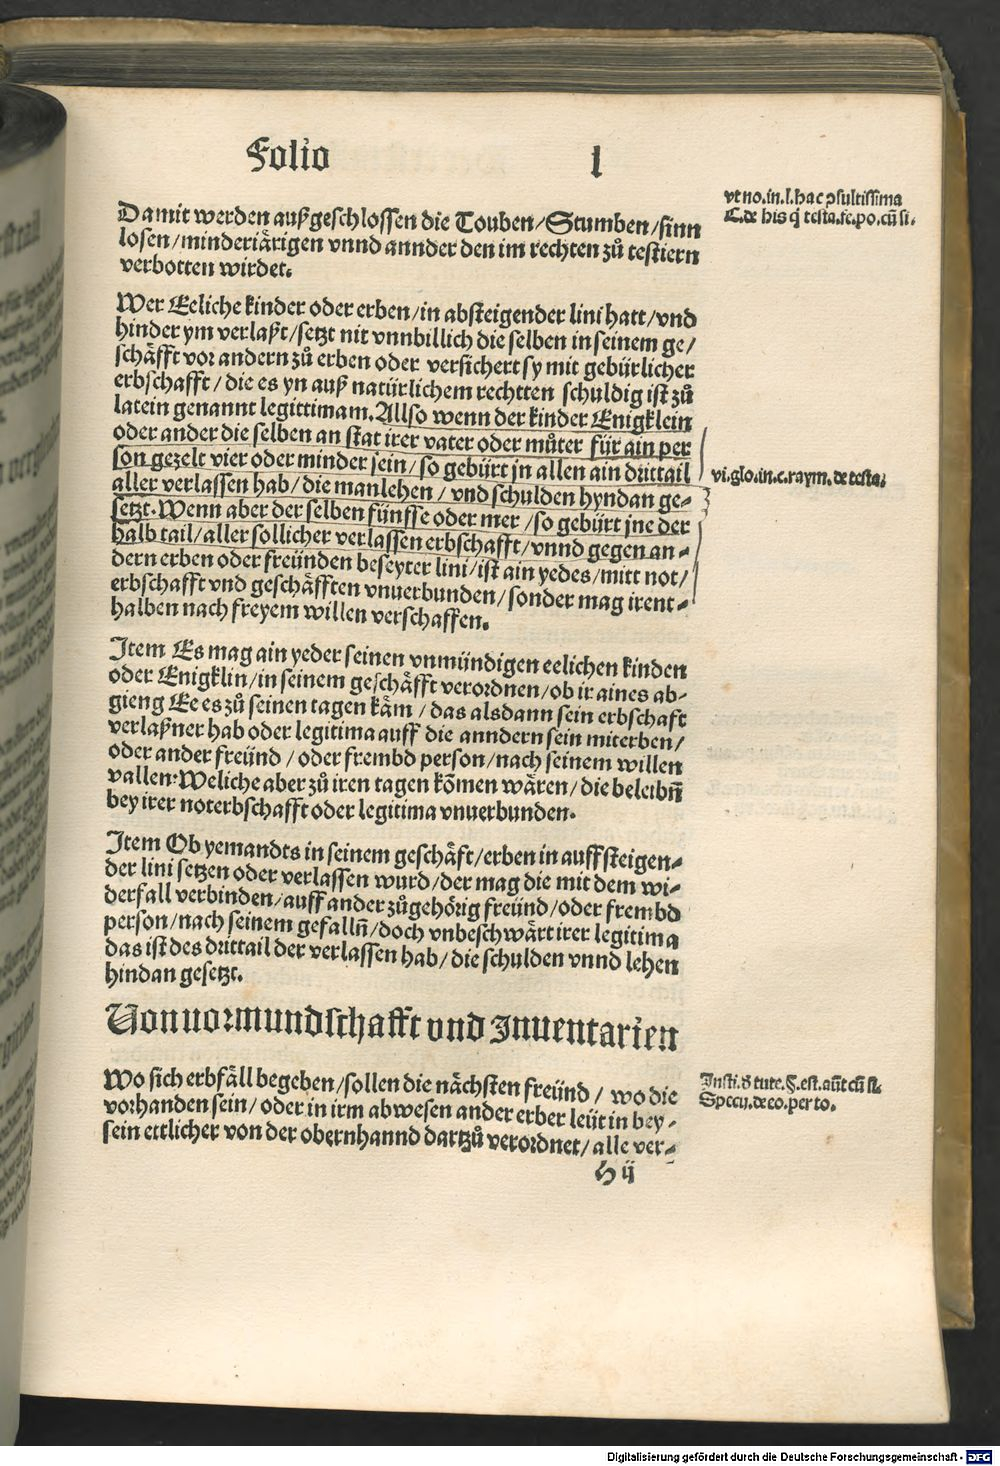 Folio l
vt no. in. l. hac ꝓsultissima
C. de his q̃ testa. fe. po. cũ si.
Damit werden außgeschlossen die Touben/Stumben/sinn
losen/minderiärigen vnnd annder den im rechten zů testiern
verbotten wirdet.
Wer Eeliche kinder oder erben/in absteigender lini hatt/vnd
hinder ym verlaßt/setzt nit vnnbillich die selben in seinem ge/
schäfft vor andern zů erben oder versichert sy mit gebürlicher
erbschafft/die es yn auß natürlichem rechtten schuldig ist zů
latein genannt legittimam. Allso wenn der kinder Enigklein
oder ander die selben an stat irer vater oder můter für ain per
son gezelt vier oder minder sein/so gebürt jn allen ain drittail
aller verlassen hab/die manlehen/vnd schulden hyndan ge-
setzt. Wenn aber der selben fünffe oder mer/so gebürt jne der
halb tail/aller sollicher verlassen erbschafft/vnnd gegen an-
dern erben oder freünden beseyter lini/ist ain yedes/mitt not/
erbschafft vnd geschäfften vnuerbunden/sonder mag irent-
halben nach freyem willen verschaffen.
vi. glo. in. c. raym. de testa.
Item Es mag ain yeder seinen vnmündigen eelichen kinden
oder Enigklin/in seinem geschäfft verordnen/ob ir aines ab-
gieng Ee es zů seinen tagen käm/das alsdann sein erbschaft
verlaßner hab oder legitima auff die anndern sein miterben/
oder ander freünd/oder frembd person/nach seinem willen
vallen: Weliche aber zů iren tagen kõmen wären/die beleibñ
bey irer noterbschafft oder legitima vnuerbunden.
Item Ob yemandts in seinem geschäft/erben in auffsteigen-
der lini setzen oder verlassen wurd/der mag die mit dem wi-
derfall verbinden/auff ander zůgehörig freünd/oder frembd
person/nach seinem gefallñ/doch vnbeschwärt irer legitima
das ist des drittail der verlassen hab/die schulden vnnd lehen
hindan gesetzt.
Von vormundschafft vnd Inuentarien
Wo sich erbfäll begeben/sollen die nächsten freünd/wo die
vorhanden sein/oder in irm abwesen ander erber leüt in bey-
sein ettlicher von der obernhannd dartzů verordnet/alle ver-
Insti. d̕ tute. §. est. aũt cũ si.
Specu. de eo. per to.
H ij
Digitalisierung gefördert durch die Deutsche Forschungsgemeinschaft - DFG